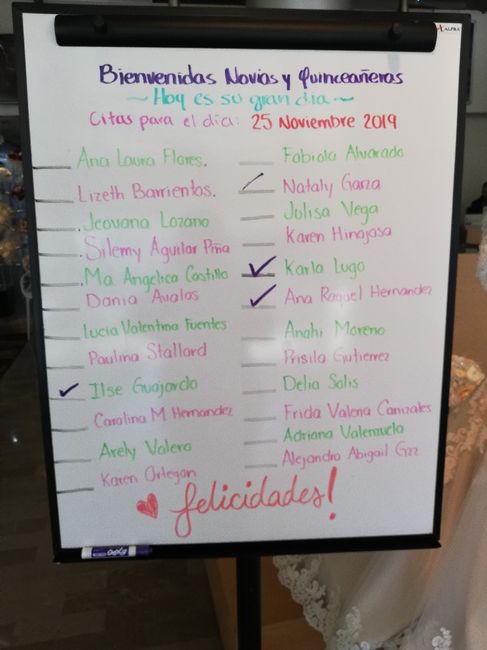 ALPRA
Bienvenidas Novias y Quinceañeras
~ Hoy es su gran día ~
Citas para el día: 25 Noviembre 2019
Ana Laura Flores.
Lizeth Barrientos.
Jeovana Lozano
Silemy Aguilar Piña
Ma Angelica Castillo
Dania Avalos
Lucia Valentina Fuentes
Paulina Stallard
Ilse Guajardo
Carolina M Hernandez
Arely Valero
Karen Ortegon
Fabiola Alvarado
Nataly Garza
Julisa Vega
Karen Hinojosa
Karla Lugo
Ana Raquel Hernandez
Anahi Moreno
Prisila Gutierrez
Delia Solis
Frida Valeria Canizales
Adriana Valenzuela
Alejandra Abigail Gzz
felicidades!